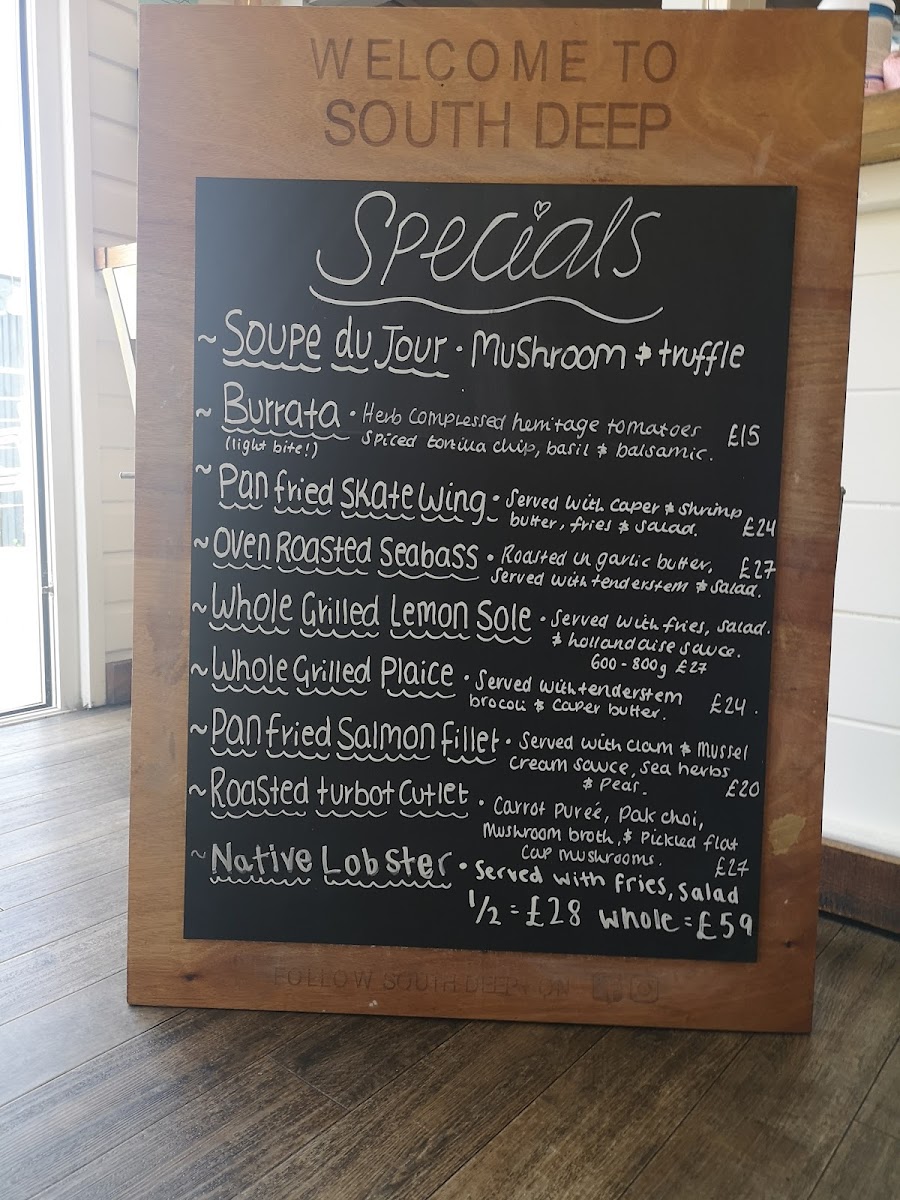 WELCOME TO
SOUTH DEEP
Specials
~ Soupe du Jour · Mushroom & truffle
~ Burrata · Herb compressed heritage tomatoes £15
(light bite!) spiced tortilla chip, basil & balsamic.
~ Pan fried Skate Wing · Served with caper & shrimp
butter, fries & salad. £24
~ Oven Roasted Seabass · Roasted in garlic butter. £27
Served with tenderstem & salad.
~ Whole Grilled Lemon Sole · Served with fries, salad.
& hollandaise sauce.
600 - 800g £27
~ Whole Grilled Plaice · Served with tenderstem
brocoli & caper butter. £24.
~ Pan fried Salmon fillet · Served with clam & mussel
cream sauce, sea herbs
& pear. £20
~ Roasted turbot Cutlet · Carrot pureé, pak choi,
Mushroom broth, & pickled flat
cap mushrooms. £27
~ Native Lobster · Served with fries, salad
1/2 = £28 whole = £59
FOLLOW SOUTH DEEP ON